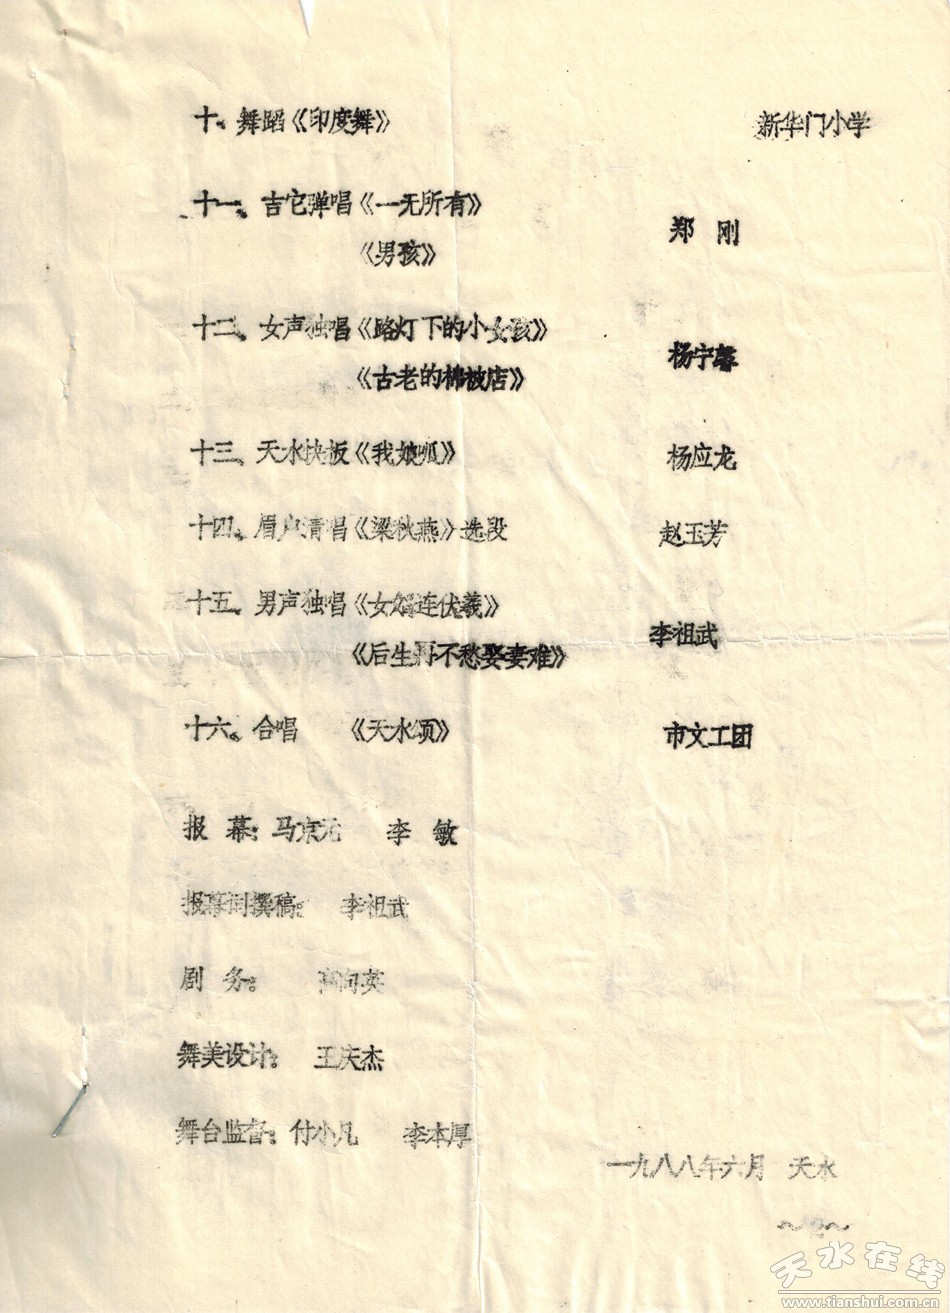 十。舞蹈《印度舞》 新华门小学
十一、吉它弹唱《一无所有》
《男孩》 郑 刚
十二、女声独唱《路灯下的小女孩》
《古老的棉被店》 杨宁馨
十三、天水快板《我娘呱》 杨应龙
十四、眉户清唱《梁秋燕》选段 赵玉芳
十五、男声独唱《女娲连伏羲》
《后生再不愁娶妻难》 李祖武
十六。合唱 《天水颂》 市文工团
报 幕：马京元 李 敏
报幕词撰稿： 李祖武
剧 务： 向英
舞美设计： 王庆杰
舞台监督：付小凡 李本厚
一九八八年六月 天水
～2～
天水在线
www.tianshui.com.cn